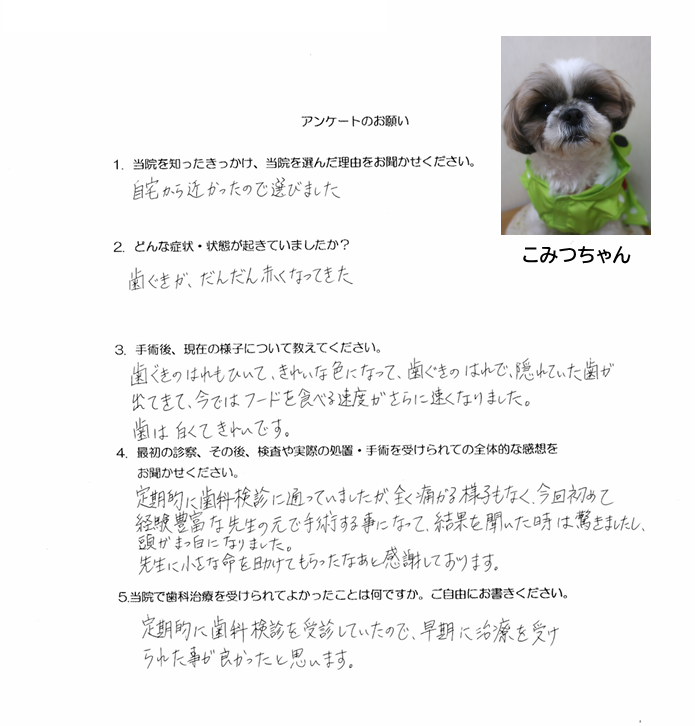 アンケートのお願い
1. 当院を知ったきっかけ、当院を選んだ理由をお聞かせください。
自宅から近かったので選びました
こみつちゃん
2. どんな症状・状態が起きていましたか？
歯ぐきが、だんだん赤くなってきた
3. 手術後、現在の様子について教えてください。
歯ぐきのはれもひいて、きれいな色になって、歯ぐきのはれで、隠れていた歯が
出てきて、今ではフードを食べる速度がさらに速くなりました。
歯は白くてきれいです。
4. 最初の診察、その後、検査や実際の処置・手術を受けられての全体的な感想を
お聞かせください。
定期的に歯科検診に通っていましたが、全く痛がる様子もなく、今回初めて
経験豊富な先生の元で手術する事になって、結果を聞いた時は驚きましたし、
頭がまっ白になりました。
先生に小さな命を助けてもらったなあと感謝しております。
5.当院で歯科治療を受けられてよかったことは何ですか。ご自由にお書きください。
定期的に歯科検診を受診していたので、早期に治療を受け
られた事が良かったと思います。